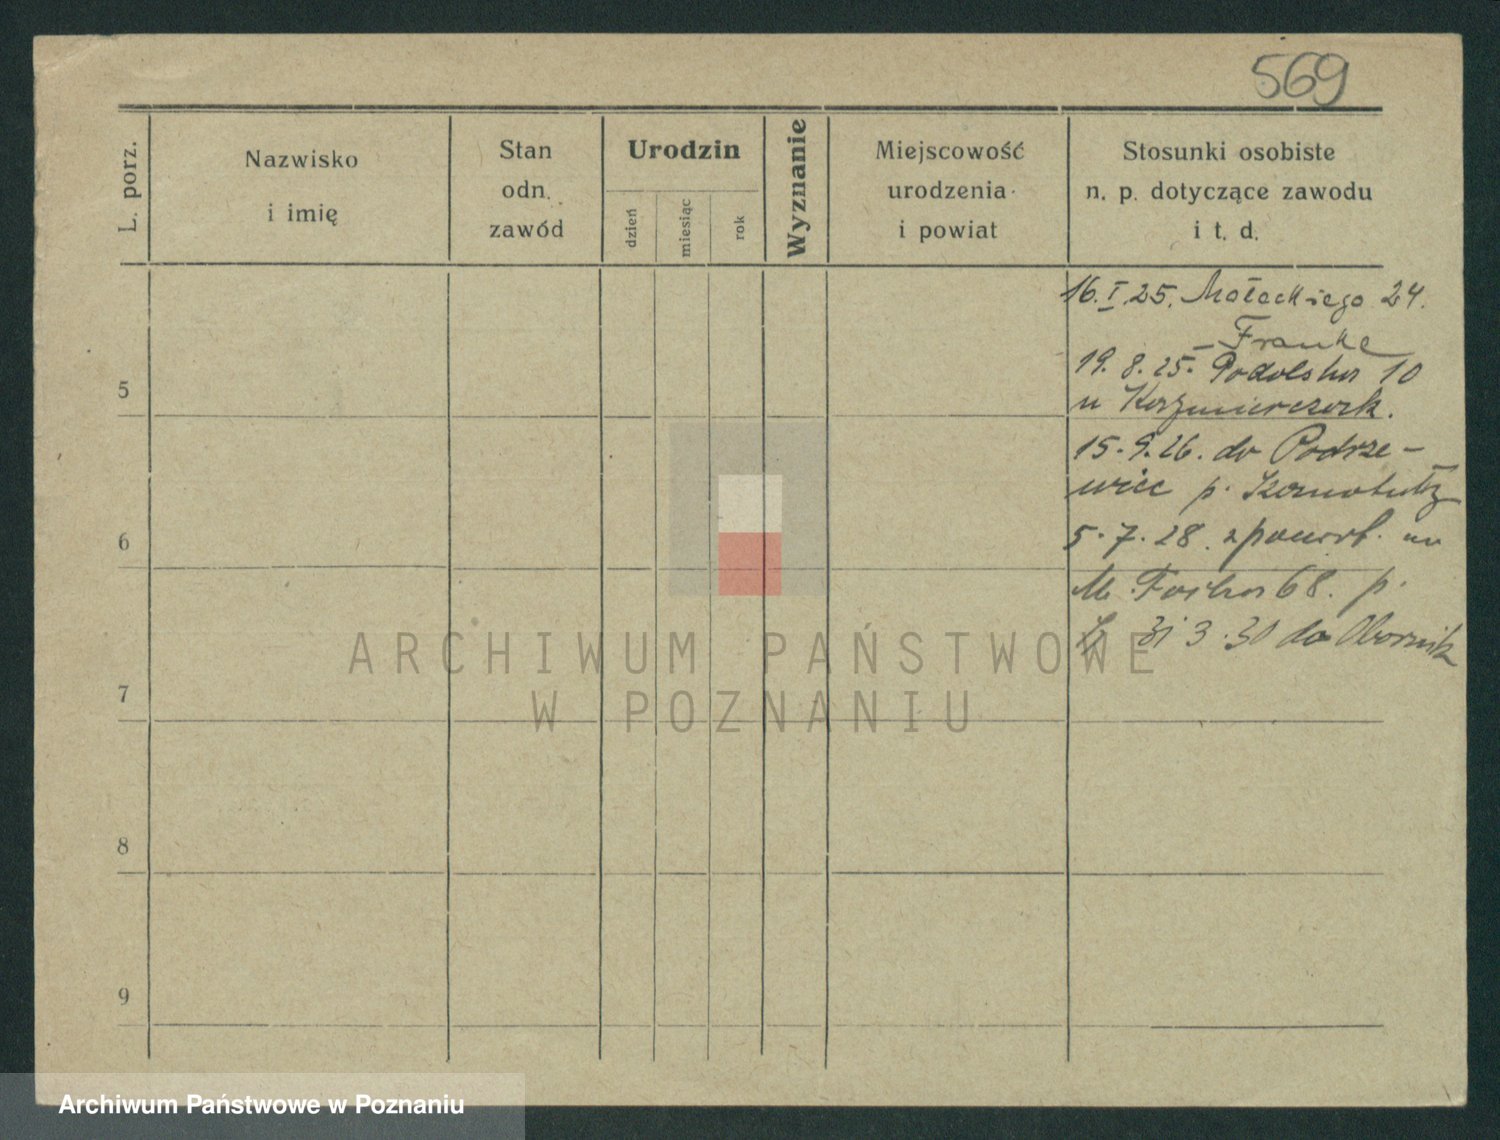 569
L. porz.
Nazwisko
i imię
Stan
odn.
zawód
Urodzin
dzień
miesiąc
rok
Wyznanie
Miejscowość
urodzenia
i powiat
Stosunki osobiste
n. p. dotyczące zawodu
i t. d.
16. I. 25. Małeckiego 24.
– Franke
19. 8. 25. Podolska 10
u Kazmierczack.
15. 9. 26. do Podrze-
wiec p.
5. 7. 28. z powrt. na
M. Focha 68. p.
31 3. 30 do Obornik
5
6
7
8
9
ARCHIWUM PAŃSTWOWE
W POZNANIU
Archiwum Państwowe w Poznaniu